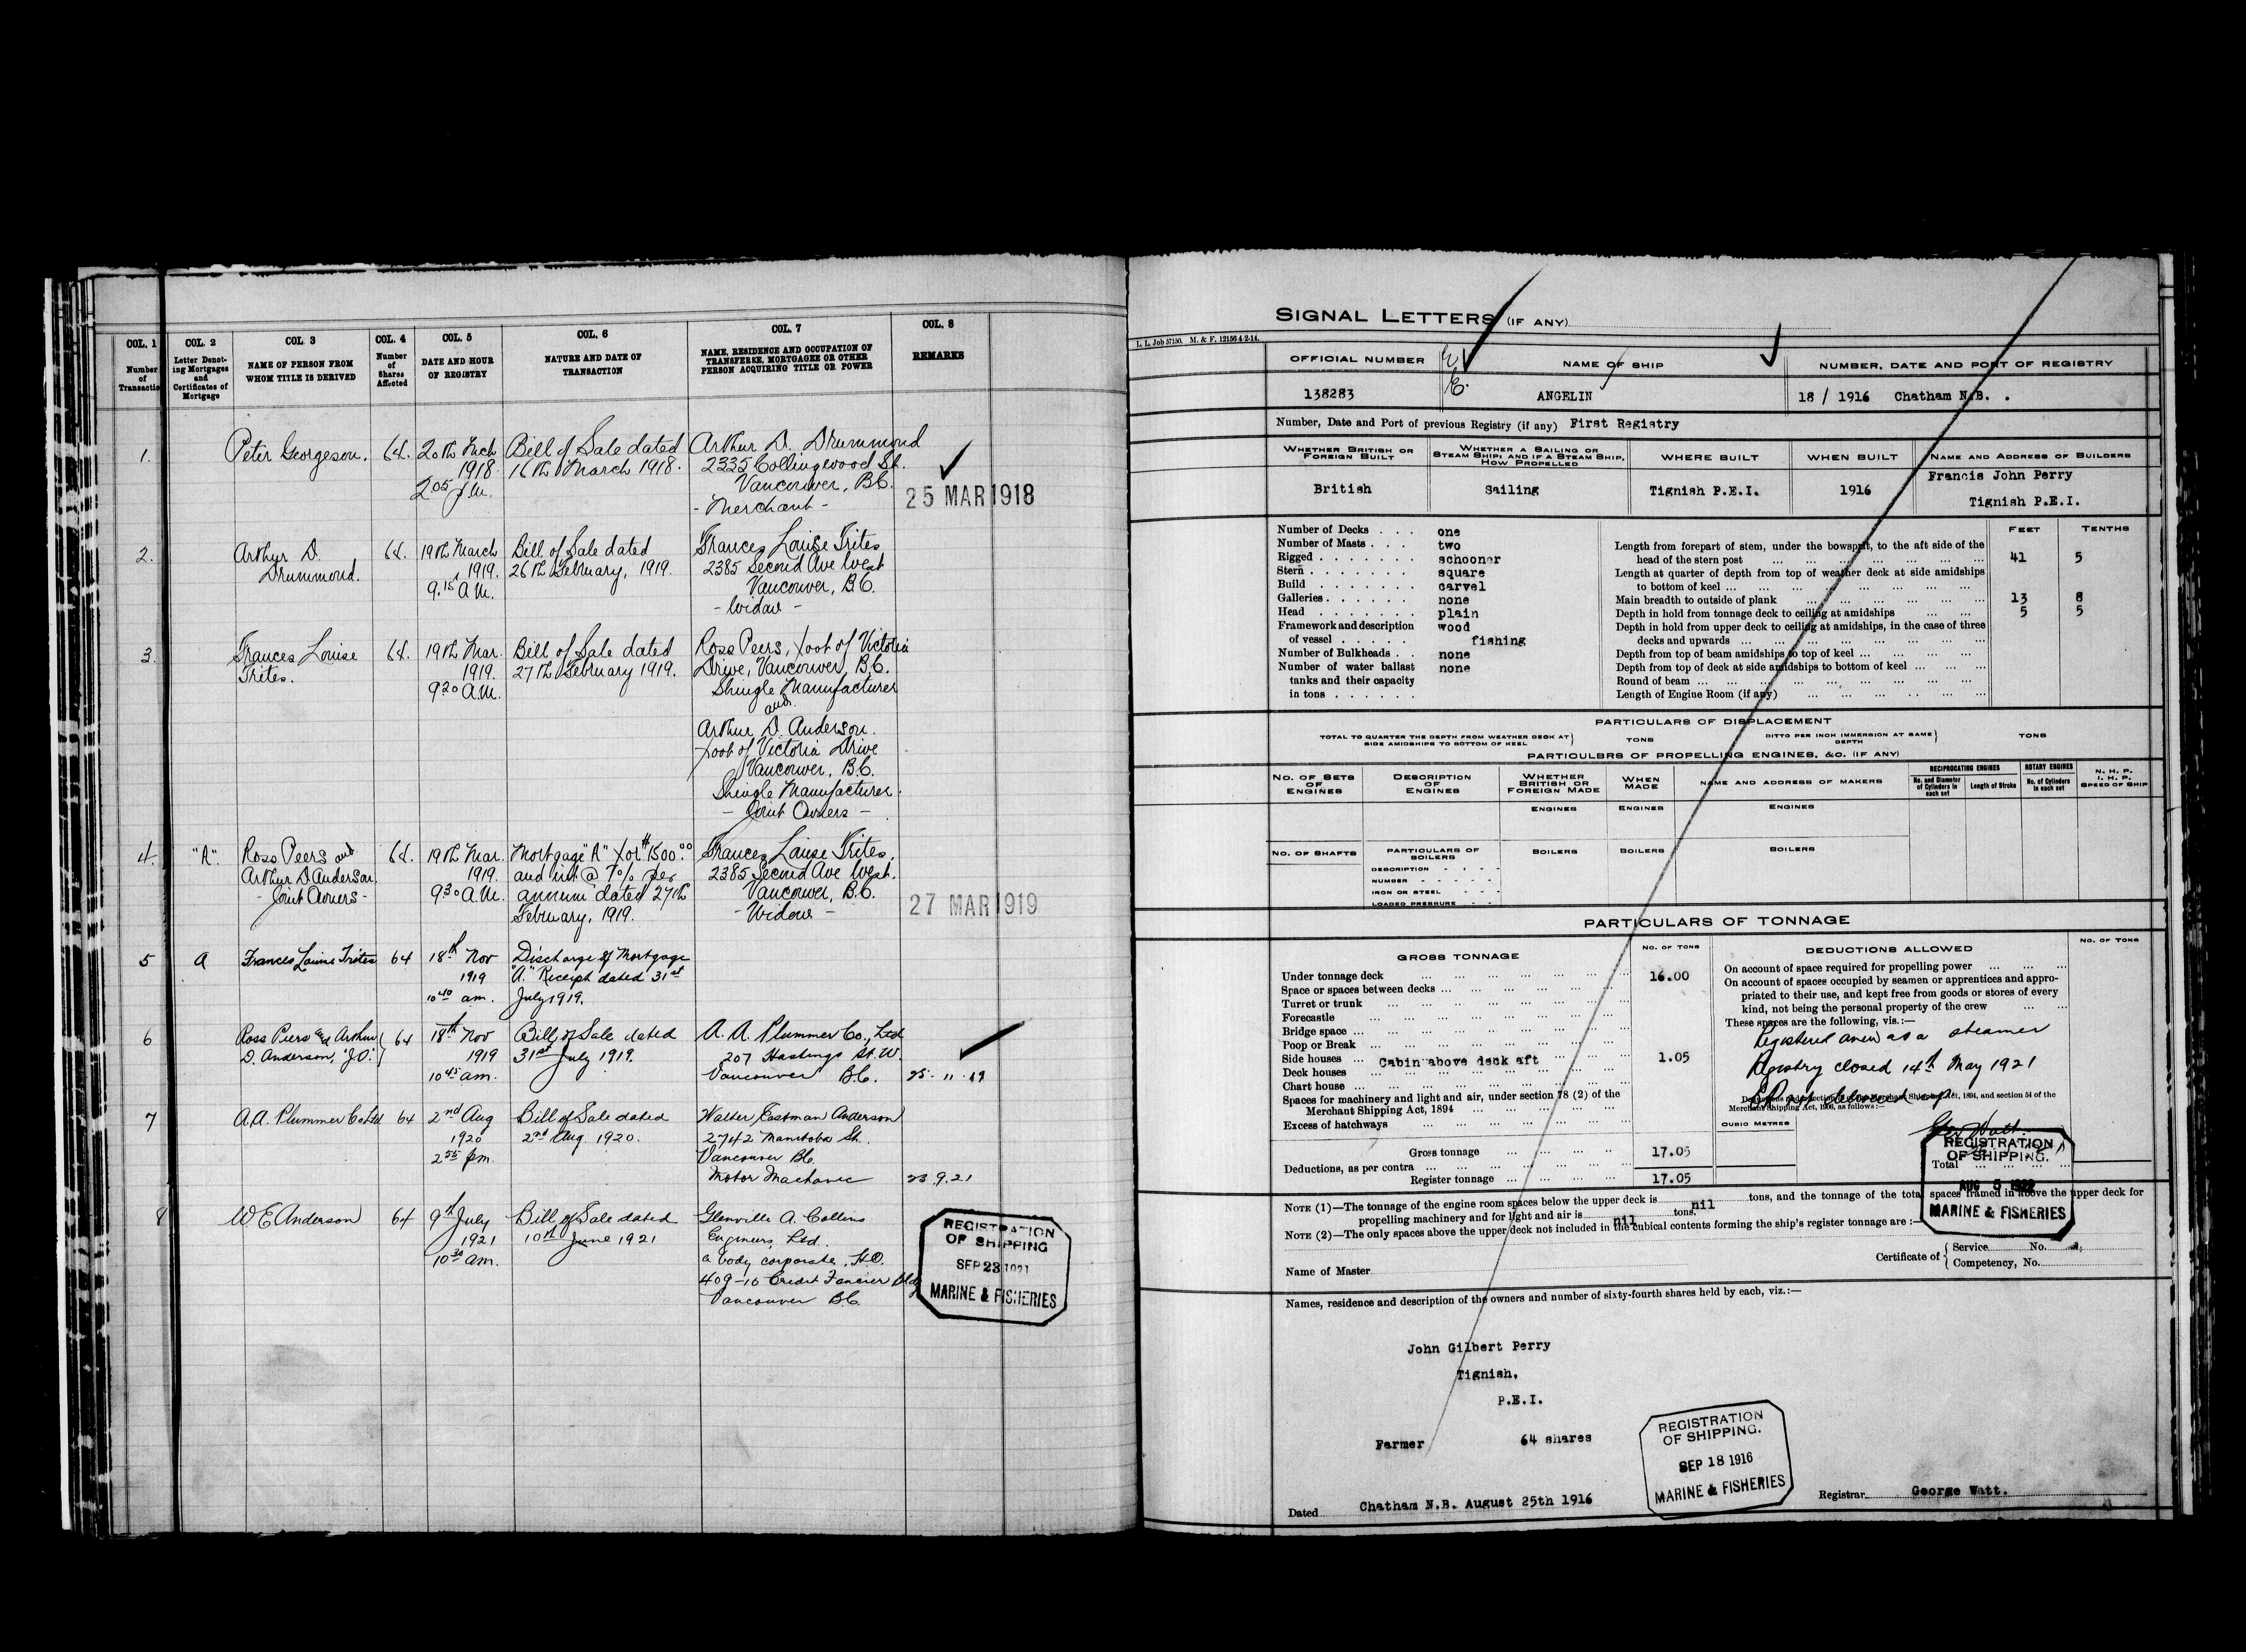 COL. 1
Number
of
Transactio
COL. 2
Letter Denot-
ing Mortgages
and
Certificates of
Mortgage
COL. 3
NAME OF PERSON FROM
WHOM TITLE IS DERIVED
COL. 4
Number
of
Shares
Affected
COL. 5
DATE AND HOUR
OF REGISTRY
COL. 6
NATURE AND DATE OF
TRANSACTION
COL. 7
NAME, RESIDENCE AND OCCUPATION OF
TRANSFEREE, MORTGAGEE OR OTHER
PERSON ACQUIRING TITLE OR POWER
COL. 8
REMARKS
1.
Peter Georgeson.
64.
20th Mch
1918
2.05 p.m.
Bill of Sale dated
16th March 1918.
Arthur D. Drummond
2335 Collingwood St.
Vancouver, B.C.
- Merchant -
25 MAR 1918
2.
Arthur D.
Drummond.
64.
19th March
1919.
9.15 A.M.
Bill of Sale dated
26th February, 1919.
Frances Louise Trites
2385 Second Ave West
Vancouver, B.C.
- Widow -
3.
Frances Louise
Trites.
64.
19th Mar.
1919.
9 20 A.M.
Bill of Sale dated
27th February 1919.
Ross Peers, foot of Victoria
Drive, Vancouver, B.C.
Shingle Manufacturer
and
Arthur D. Anderson.
foot of Victoria Drive
Vancouver, B.C.
Shingle Manufacturer.
- Joint Owners -
4.
"A".
Ross Peers and
Arthur D Anderson.
- Joint Owners -
64.
19th Mar.
1919.
9 30 A.M.
Mortgage "A" for $1500.00
and int @ 7% per
annum dated 27th
February, 1919.
Frances Louise Trites.
2385 Second Ave West.
Vancouver, B.C.
- Widow -
27 MAR 1919
5
A
Frances Louise Trites
64
18th Nov
1919
10 40 am.
Discharge of Mortgage
"A." Receipt dated 31st
July 1919.
6
Ross Peers and Arthur
D. Anderson, "J.O."
64
18th Nov
1919
10 45 am.
Bill of Sale dated
31st July 1919.
A. A. Plummer Co., Ltd
207 Hastings St. W.
Vancouver B.C.
25. 11. 19
7
A.A. Plummer Co Ltd
64
2nd Aug
1920
2 55 pm.
Bill of Sale dated
2nd Aug. 1920.
Walter Eastman Anderson
2742 Manitoba St.
Vancouver BC.
Motor Mechanic
23.9.21
8
W E Anderson
64
9th July
1921
10 30 am.
Bill of Sale dated
10th June 1921
Glenville A. Collins
Engineers, Ltd.
a body corporate, H.O.
409-10 Credit Foncier Bldg
Vancouver BC.
REGISTRATION
OF SHIPPING
SEP 23 1921
MARINE & FISHERIES
SIGNAL LETTERS (IF ANY)
L. L. Job 57150. M. & F. 12156 4-2-14.
OFFICIAL NUMBER
NAME OF SHIP
NUMBER, DATE AND PORT OF REGISTRY
138283
ANGELIN
18 / 1916 Chatham N.B. .
Number, Date and Port of previous Registry (if any) First Registry
WHETHER BRITISH OR
FOREIGN BUILT
WHETHER A SAILING OR
STEAM SHIP; AND IF A STEAM SHIP,
HOW PROPELLED
WHERE BUILT
WHEN BUILT
NAME AND ADDRESS OF BUILDERS
British
Sailing
Tignish P.E.I.
1916
Francis John Perry
Tignish P.E.I.
Number of Decks . . . one
Number of Masts . . . two
Rigged . . . . . . . schooner
Stern . . . . . . . . square
Build . . . . . . . carvel
Galleries . . . . . . none
Head . . . . . . . plain
Framework and description wood
of vessel . . . . . fishing
Number of Bulkheads . . none
Number of water ballast none
tanks and their capacity
in tons . . . . . .
FEET TENTHS
Length from forepart of stem, under the bowsprit, to the aft side of the
head of the stern post 41 5
Length at quarter of depth from top of weather deck at side amidships
to bottom of keel
Main breadth to outside of plank 13 8
Depth in hold from tonnage deck to ceiling at amidships 5 5
Depth in hold from upper deck to ceiling at amidships, in the case of three
decks and upwards
Depth from top of beam amidships to top of keel
Depth from top of deck at side amidships to bottom of keel
Round of beam
Length of Engine Room (if any)
PARTICULARS OF DISPLACEMENT
TOTAL TO QUARTER THE DEPTH FROM WEATHER DECK AT
SIDE AMIDSHIPS TO BOTTOM OF KEEL
TONS
DITTO PER INCH IMMERSION AT SAME
DEPTH
TONS
PARTICULBRS OF PROPELLING ENGINES, &C. (IF ANY)
NO. OF SETS
OF
ENGINES
DESCRIPTION
OF
ENGINES
WHETHER
BRITISH OR
FOREIGN MADE
WHEN
MADE
NAME AND ADDRESS OF MAKERS
RECIPROCATING ENGINES
No. and Diameter
of Cylinders in
each set
Length of Stroke
ROTARY ENGINES
No. of Cylinders
in each set
N. H. P.
I. H. P.
SPEED OF SHIP
ENGINES
ENGINES
ENGINES
NO. OF SHAFTS
PARTICULARS OF
BOILERS
BOILERS
BOILERS
BOILERS
DESCRIPTION
NUMBER
IRON OR STEEL
LOADED PRESSURE
PARTICULARS OF TONNAGE
GROSS TONNAGE
NO. OF TONS
Under tonnage deck 16.00
Space or spaces between decks
Turret or trunk
Forecastle
Bridge space
Poop or Break
Side houses Cabin above deck aft 1.05
Deck houses
Chart house
Spaces for machinery and light and air, under section 78 (2) of the
Merchant Shipping Act, 1894
Excess of hatchways
Gross tonnage 17.05
Deductions, as per contra
Register tonnage 17.05
DEDUCTIONS ALLOWED
NO. OF TONS
On account of space required for propelling power
On account of spaces occupied by seamen or apprentices and appro-
priated to their use, and kept free from goods or stores of every
kind, not being the personal property of the crew
These spaces are the following, viz.:—
Registered anew as a steamer
Registry closed 14th May 1921
Merchant Shipping Act, 1906, as follows:—
CUBIC METRES
Geo Watt.
REGISTRATION
OF SHIPPING.
Total
AUG 5 1922
MARINE & FISHERIES
NOTE (1)—The tonnage of the engine room spaces below the upper deck is nil tons, and the tonnage of the total spaces framed in above the upper deck for
propelling machinery and for light and air is nil tons.
NOTE (2)—The only spaces above the upper deck not included in the cubical contents forming the ship's register tonnage are :—
Name of Master
Certificate of
Service No.
Competency, No.
Names, residence and description of the owners and number of sixty-fourth shares held by each, viz.:—
John Gilbert Perry
Tignish,
P.E.I.
Farmer 64 shares
REGISTRATION
OF SHIPPING.
SEP 18 1916
MARINE & FISHERIES
Dated Chatham N.B. August 25th 1916
Registrar George Watt.